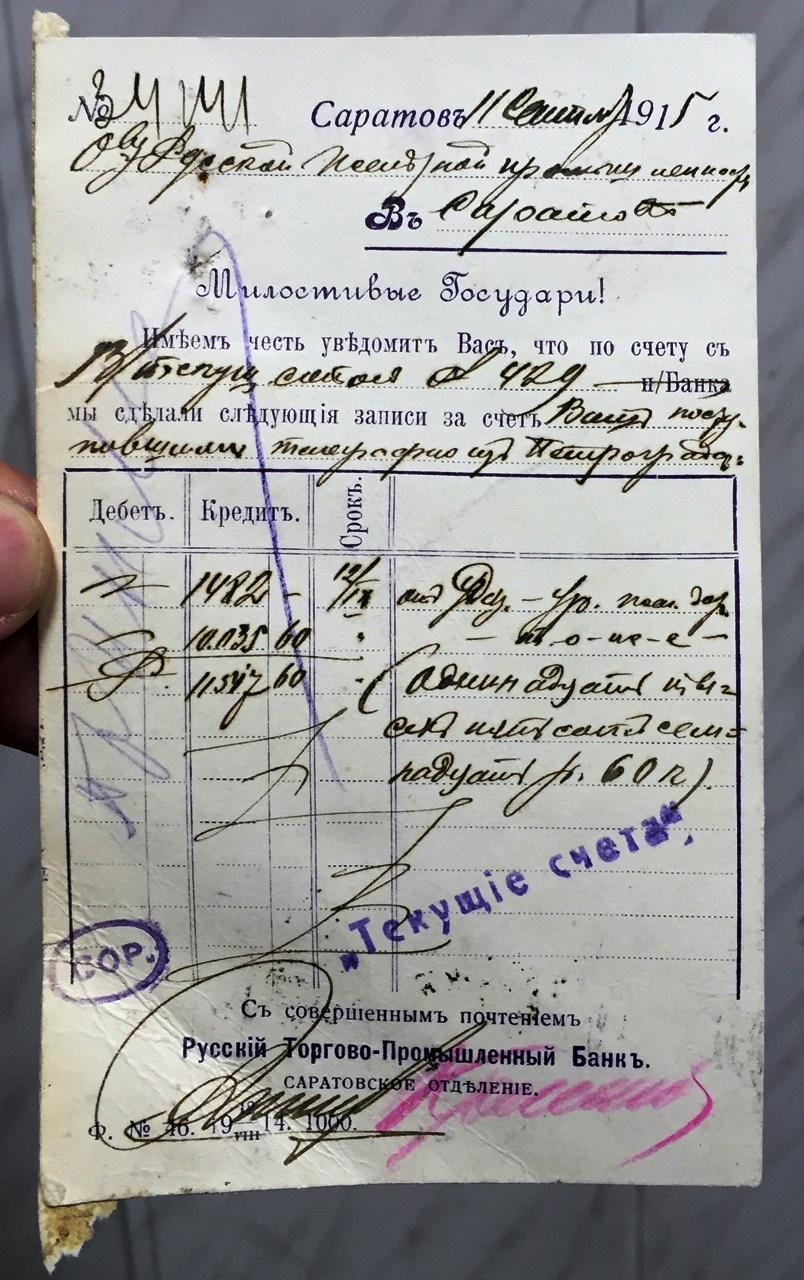 № Саратовъ 11 Сентяб 1915 г.
Въ Саратовѣ
Милостивые Государи!
Имѣемъ честь увѣдомить Васъ, что по счету съ
В/текущ. счетом № 429 — п/Банка
мы сдѣлали слѣдующія записи за счетъ Вашъ посту-
телеграфно изъ Петрограда:
Дебетъ. Кредитъ. Срокъ.
1482 - 12/IX отъ
10.035 60 " — т о - ж е —
11517 60 " (Одиннадцать тыся=
пятьсотъ семь=
надцать р. 60 к).
„Текущіе счета“.
СОР.
Съ совершеннымъ почтеніемъ
Русскій Торгово-Промышленный Банкъ.
САРАТОВСКОЕ ОТДѢЛЕНІЕ.
Ф. № 46. 19 VIII 14. 1000.